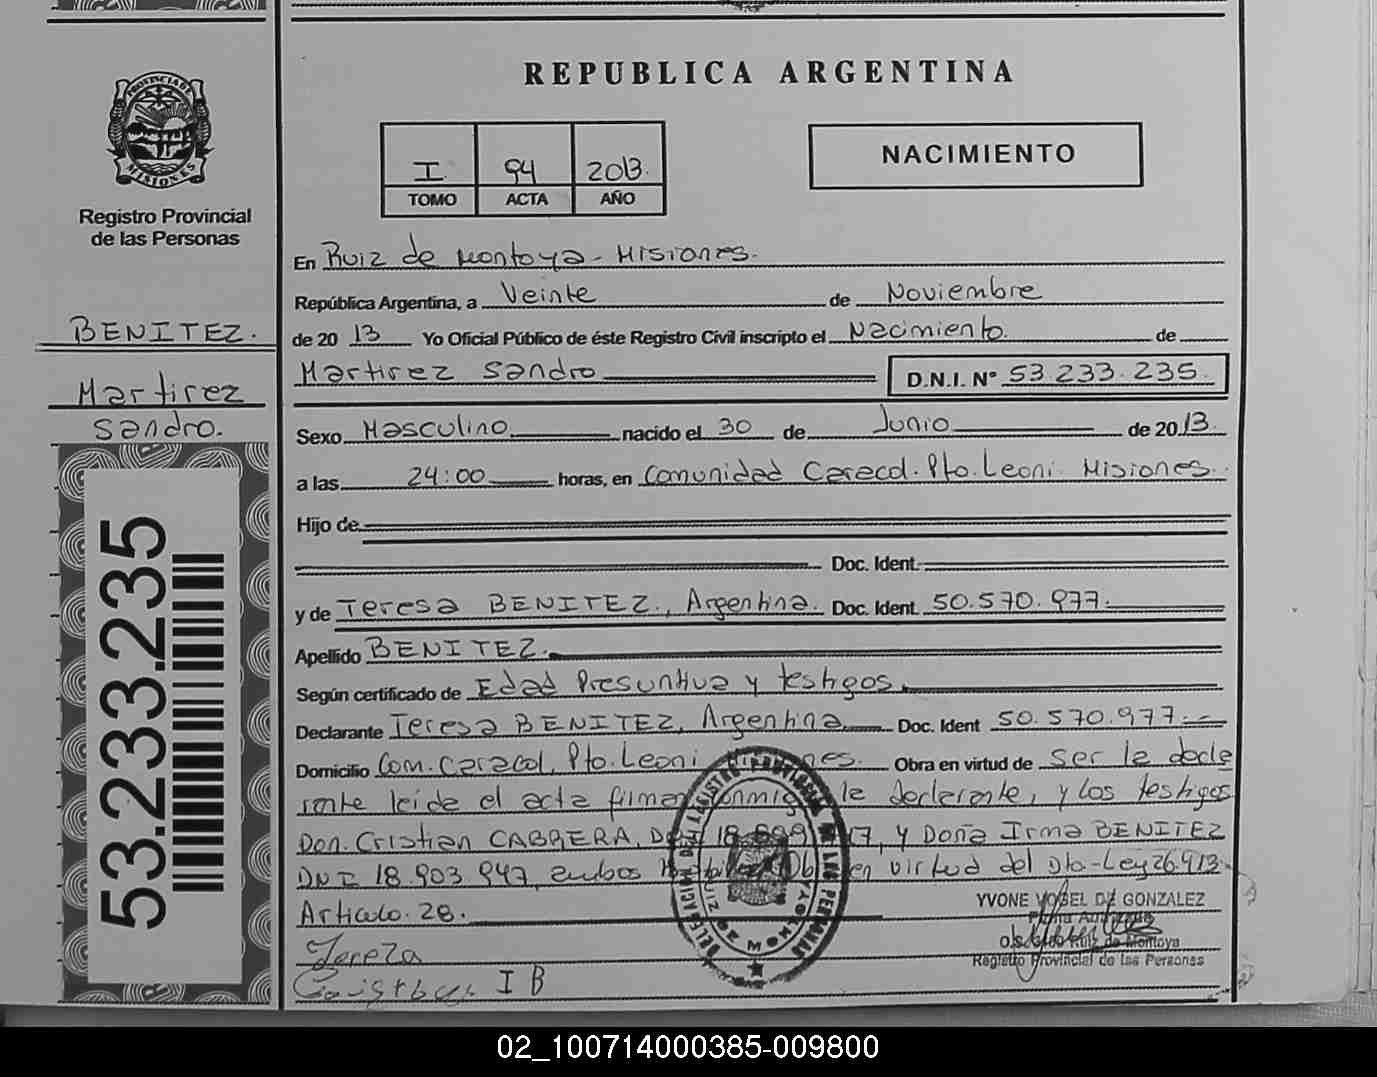 REPUBLICA ARGENTINA
PROVINCIA DE
MISIONES
Registro Provincial
de las Personas
BENITEZ.
Martirez
Sandro.
53.233.235
I 94 2013.
TOMO ACTA AÑO
NACIMIENTO
En Ruiz de Montoya - Misiones.
República Argentina, a Veinte de Noviembre
de 20 13 Yo Oficial Público de éste Registro Civil inscripto el Nacimiento. de
Martirez Sandro D.N.I. N° 53.233.235.
Sexo Masculino nacido el 30 de Junio de 20 13.
a las 24:00 horas, en Comunidad Caracol. Pto. Leoni Misiones.
Hijo de
Doc. Ident.
y de Teresa BENITEZ., Argentina. Doc. Ident. 50.570.977.
Apellido BENITEZ.
Según certificado de Edad Presuntiva y testigos.
Declarante Teresa BENITEZ, Argentina. Doc. Ident 50.570.977.-
Domicilio Com. Caracol, Pto. Leoni Misiones. Obra en virtud de Ser la decla
rante leida el acta firman conmigo la declarante, y los testigos
Don. Cristian CABRERA, 17, y Doña Irma BENITEZ
DNI 18.903.947, ambos en virtud del Dto-Ley 26.413.
Articulo. 28.
Tereza
I B
YVONE VOGEL DE GONZALEZ
Firma Autorizada
Ruiz de Montoya
Registro Provincial de las Personas
DELEGACION DEL REGISTRO PROVINCIAL DE LAS PERSONAS
RUIZ DE MONTOYA
02_100714000385-009800